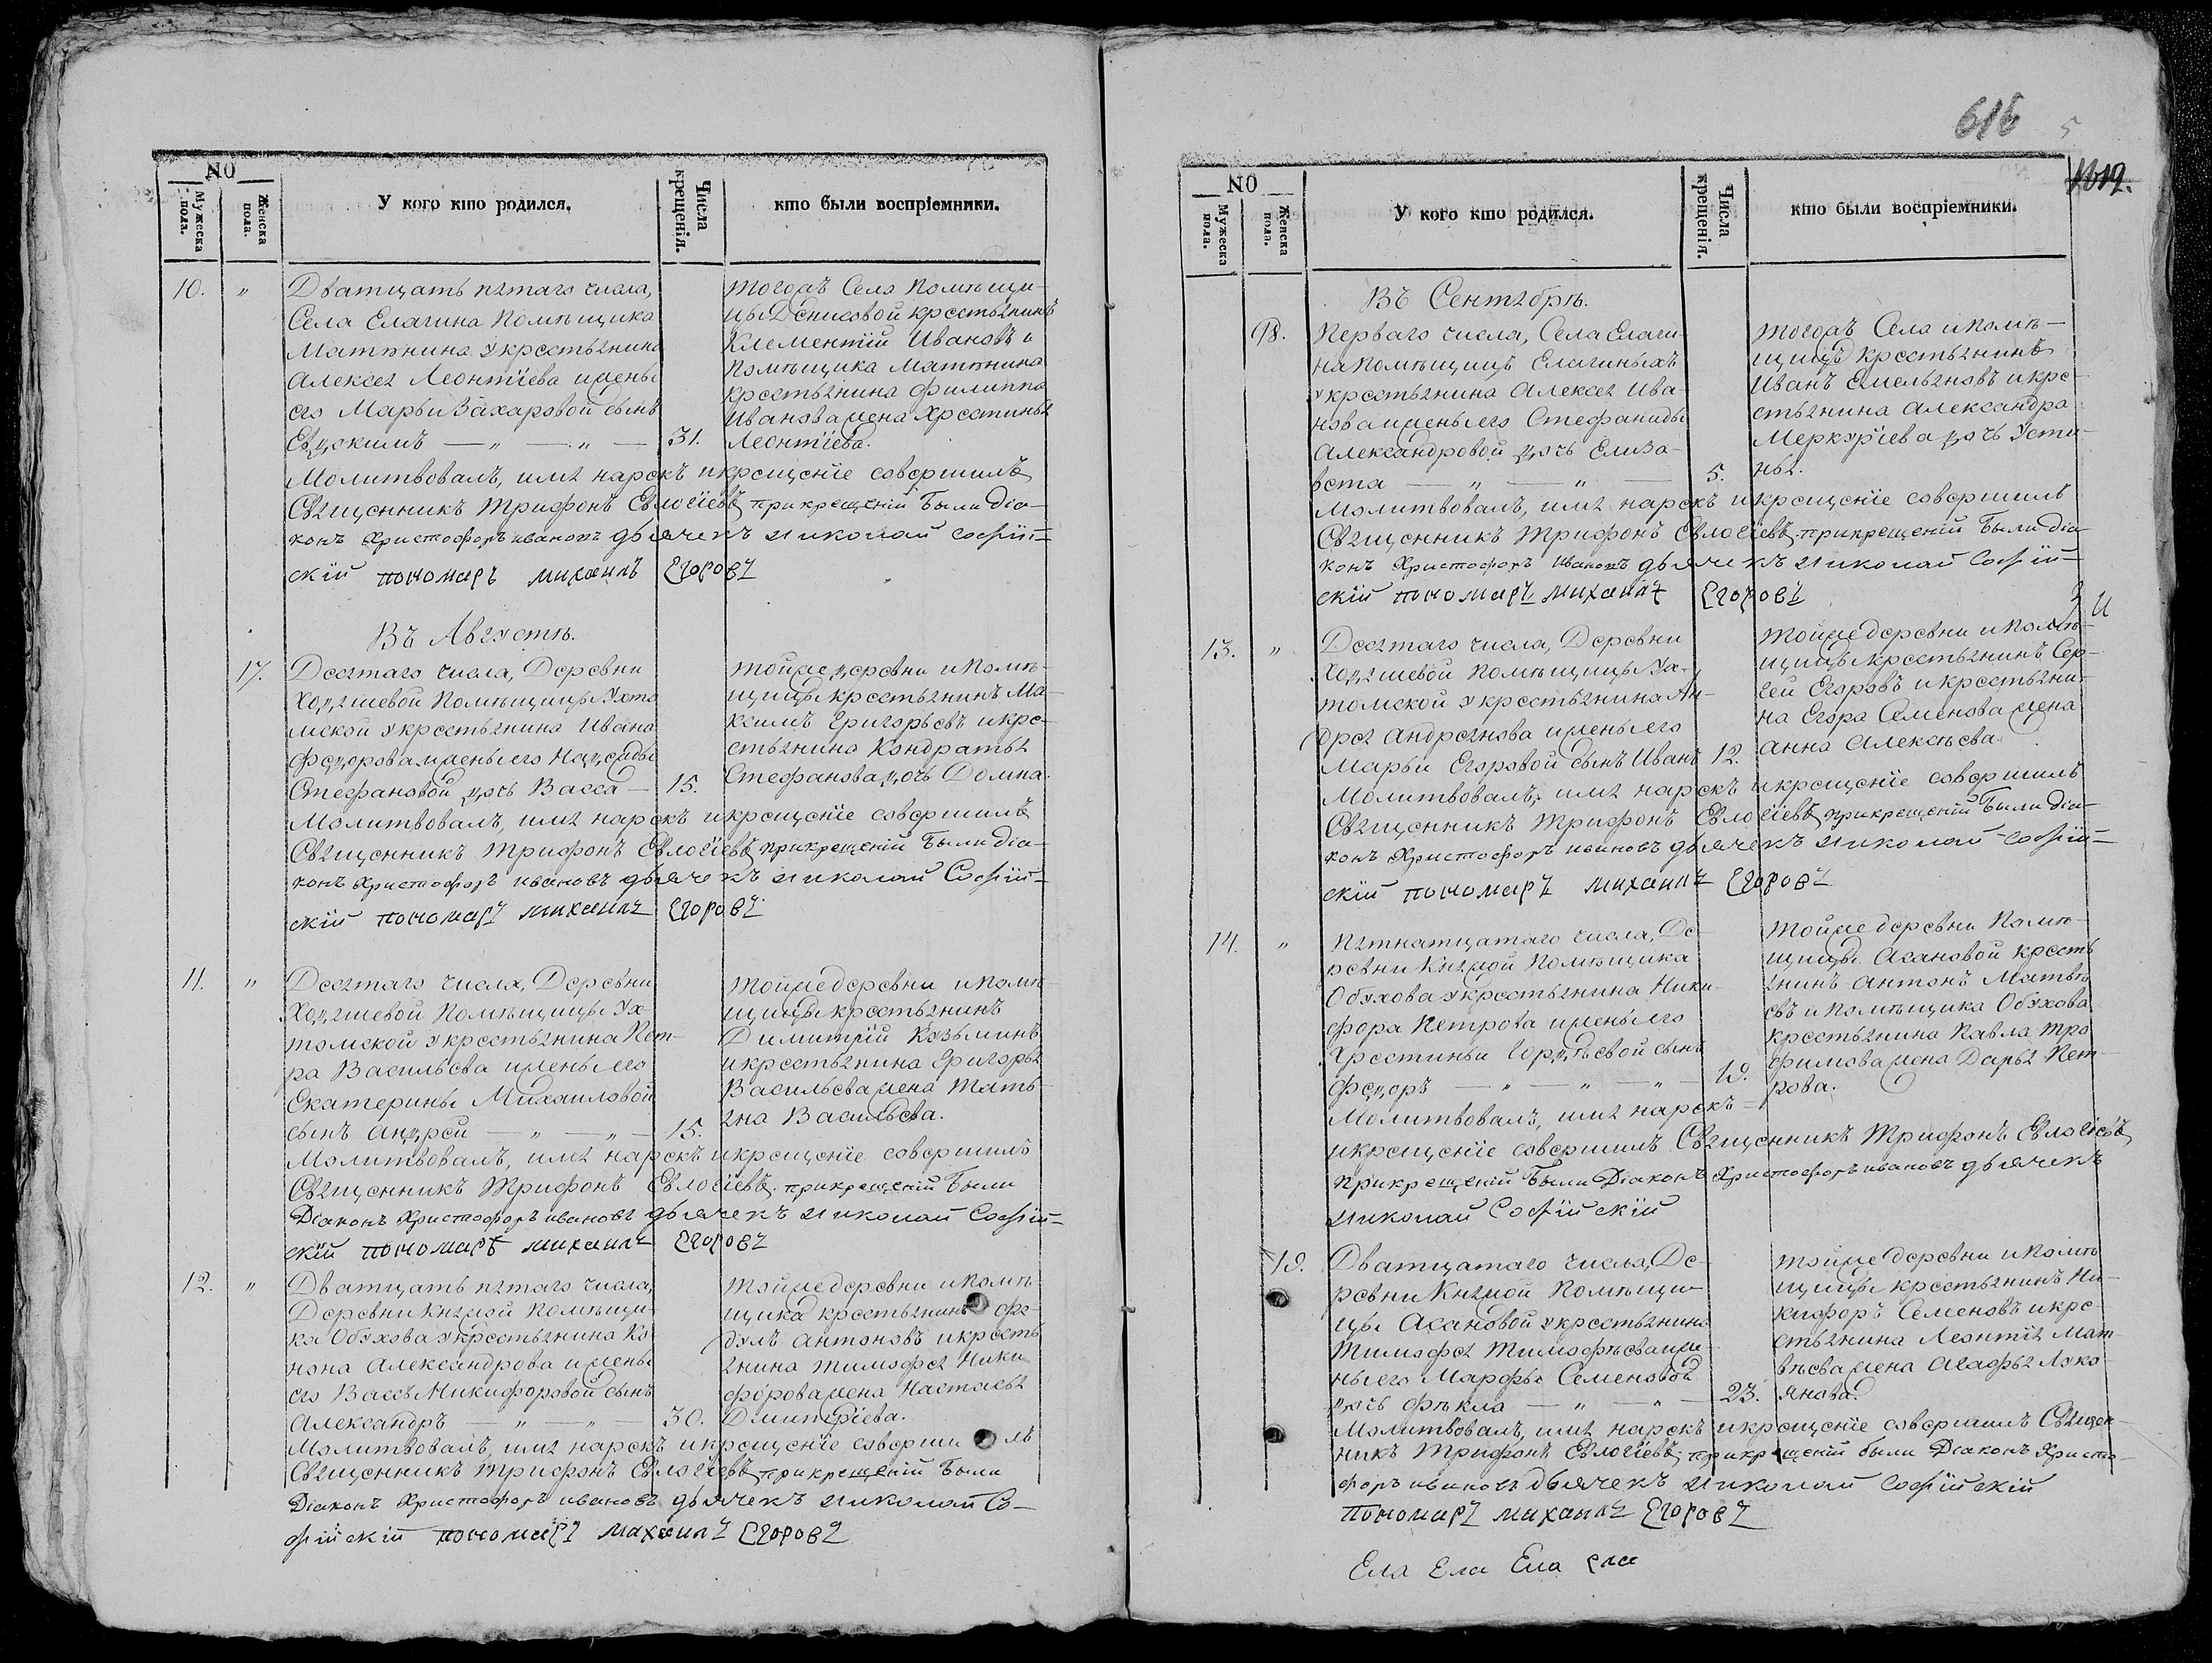 NO
Мужеска пола.
Женска пола.
У кого кто родился.
Числа крещенія.
кто были воспріемники.
10. " Дватцать пятаго числа,
Села Елагина Помѣщика
Матюнина укрестьянина
Алексея Леонтіева ижены
его Марьи Захаровой сынъ
Евдокимъ — " — " — 31.
тогожъ Села Помѣщи-
цы Денисовой крестьянинъ
Клементій Ивановъ и
Помѣщика Матюнина
крестьянина Филиппа
Иванова жена Хрестинья
Леонтіева.
Молитвовалъ, имя нарекъ икрещеніе совершилъ
Священникъ Трифонъ Евлогіевъ, прикрещеніи Были діа-
конъ Христофоръ ивановъ дьячекъ николай софій-
скій пономарь михаилъ Егоровъ
Въ Августѣ.
17. Десятаго числа, Деревни
Ходяшевой Помѣщицы Ухто
мской укрестьянина Ивана
Федорова иженыего Надежды
Стефановой дочь Васса — 15.
тойже деревни ипомѣ-
щицы крестьянинъ Ма-
ксимъ Григорьевъ икре-
стьянина Кондратья
Стефанова дочь Домна.
Молитвовалъ, имя нарекъ икрещеніе совершилъ
Священникъ Трифонъ Евлогіевъ, прикрещеніи Были діа-
конъ Христофоръ ивановъ дьячекъ николай Софій-
скій пономарь михаилъ Егоровъ
11. " Десятаго числа, Деревни
Ходяшевой Помѣщицы Ух-
томской укрестьянина Пет-
ра Васильева иженыего
Екатерины Михаиловой
сынъ Андрей — " — " — 15.
тойжедеревни ипомѣ-
щицы крестьянинъ
Димитрій Козьминъ
икрестьянина Григорья
Васильева жена Тать-
яна Васильева.
Молитвовалъ, имя нарекъ икрещеніе совершилъ
Священникъ Трифонъ Евлогіевъ, прикрещеніи Были
Діаконъ Христофоръ ивановъ дьячекъ николай Софій-
скій пономарь михаилъ Егоровъ
12. " Дватцать пятаго числа,
Деревни Княжой Помѣщи-
ка Обухова укрестьянина Ко-
нона Александрова ижены
его Вассы Никифоровой сынъ
Александръ — " — " — 30.
тойжедеревни ипомѣ-
щика крестьянинъ Фа-
дѣй Антоновъ икресть
янина Тимофея Ники
форова жена Настасья
Димитріева.
Молитвовалъ, имя нарекъ икрещеніе соверши лъ
Священникъ Трифонъ Евлогіевъ, прикрещеніи Были
Діаконъ Христофоръ ивановъ дьячекъ николай Со-
фійскій пономарь михаилъ Егоровъ
616
5
1619.
NO
Мужеска пола.
Женска пола.
У кого кто родился.
Числа крещенія.
кто были воспріемники.
Въ Сентябрѣ.
18. Перваго числа, Села Елаги-
на Помѣщицъ Елагиныхъ
укрестьянина Алексея Ива-
нова иженыего Стефаниды
Александровой дочь Елиза-
вета — " — " — 5.
тогожъ Села ипомѣ-
щицъ крестьянинъ
Иванъ Емельяновъ икре-
стьянина Александра
Меркурьева дочь Усти-
нья.
Молитвовалъ, имя нарекъ икрещеніе совершилъ
Священникъ Трифонъ Евлогіевъ, прикрещеніи Были діа-
конъ Христофоръ ивановъ дьячекъ николай софій-
скій пономарь михаилъ Егоровъ
13. " Десятаго числа, Деревни
Ходяшевой Помѣщицы Ух-
томской укрестьянина Ан-
дрея Андреянова иженыего
Марьи Егоровой сынъ Иванъ 12.
тойжедеревни ипомѣ-
щицы крестьянинъ Сер-
гей Егоровъ икрестьяни-
на Егора Семенова жена
Анна Алексѣева.
Молитвовалъ, имя нарекъ икрещеніе совершилъ
Священникъ Трифонъ Евлогіевъ, прикрещеніи Были діа-
конъ Христофоръ ивановъ дьячекъ николай софій-
скій пономарь михаилъ Егоровъ
14. " Пятнатцатаго числа, Де-
ревни Княжой Помѣщика
Обухова укрестьянина Ники-
фора Петрова иженыего
Хрестиньи Гордѣевой сынъ
Федоръ — " — " — " 19.
тойже деревни Помѣ-
щицы Асановой кресть
янинъ Антонъ Матвѣ
евъ и Помѣщика Обухова
крестьянина Павла Тро
фимова жена Дарья Пет-
рова.
Молитвовалъ, имя нарекъ —
икрещеніе совершилъ Священникъ Трифонъ Евлогіевъ,
прикрещеніи Были Діаконъ Христофоръ ивановъ дьячекъ
николай Софійскій
19. Дватцатаго числа, Де-
ревни Княжой Помѣщи-
цы Асановой укрестьянина
Тимофея Тимофѣева иже-
ныего Марфы Семеновой
дочь Фекла — " — " — 23.
тойже деревни ипомѣ
щицы крестьянинъ Ни-
кифоръ Семеновъ икре-
стьянина Леонтія Мат-
вѣева жена Агафья Луко
янова.
Молитвовалъ, имя нарекъ икрещеніе совершилъ Священ-
никъ Трифонъ Евлогіевъ, прикрещеніи были Діаконъ Христо-
форъ ивановъ дьячекъ николай софійскій
пономарь михаилъ Егоровъ
Ела Ела Ела ела